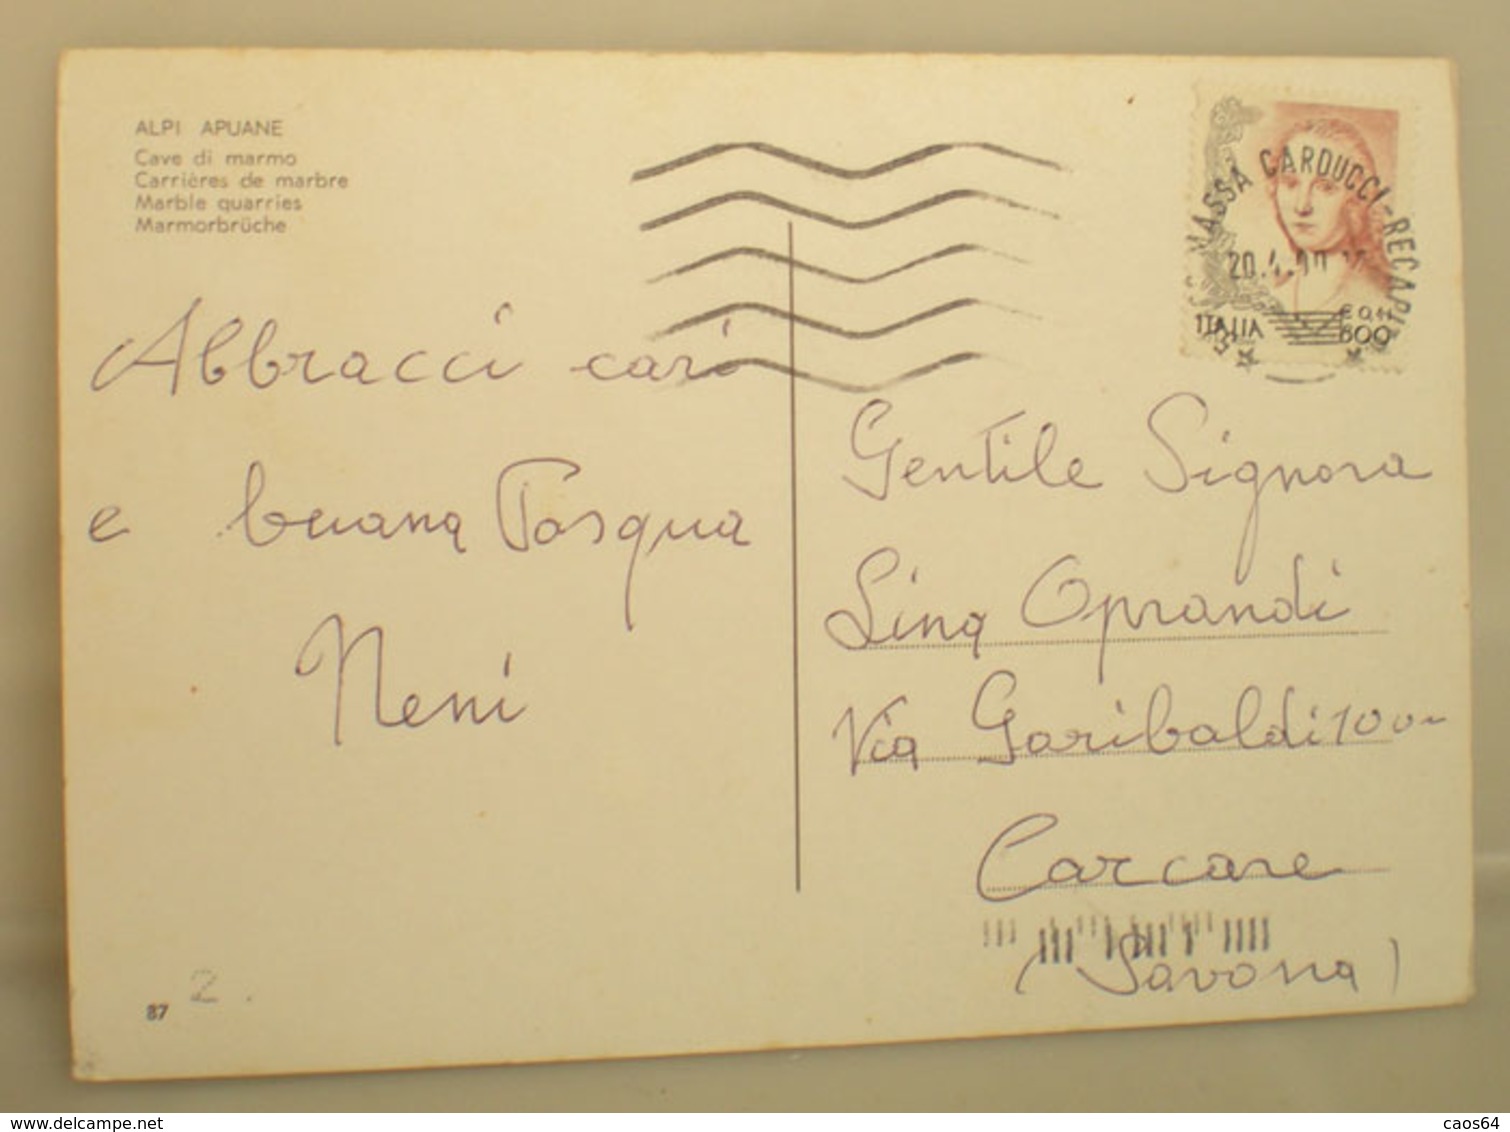 ALPI APUANE
Cave di marmo
Carrières de marbre
Marble quarries
Marmorbrüche
Abbracci cari
e buona Pasqua
Neni
MASSA CARDUCCI-RECAPITO
20.4.
ITALIA
€ 0,41
800
Gentile Signora
Lina Oprandi
Via Garibaldi 100
Carcare
(Savona)
87
2.
www.delcampe.net
caos64